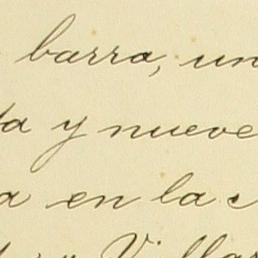 barra, un
ta y nueve
a en la c
Vill